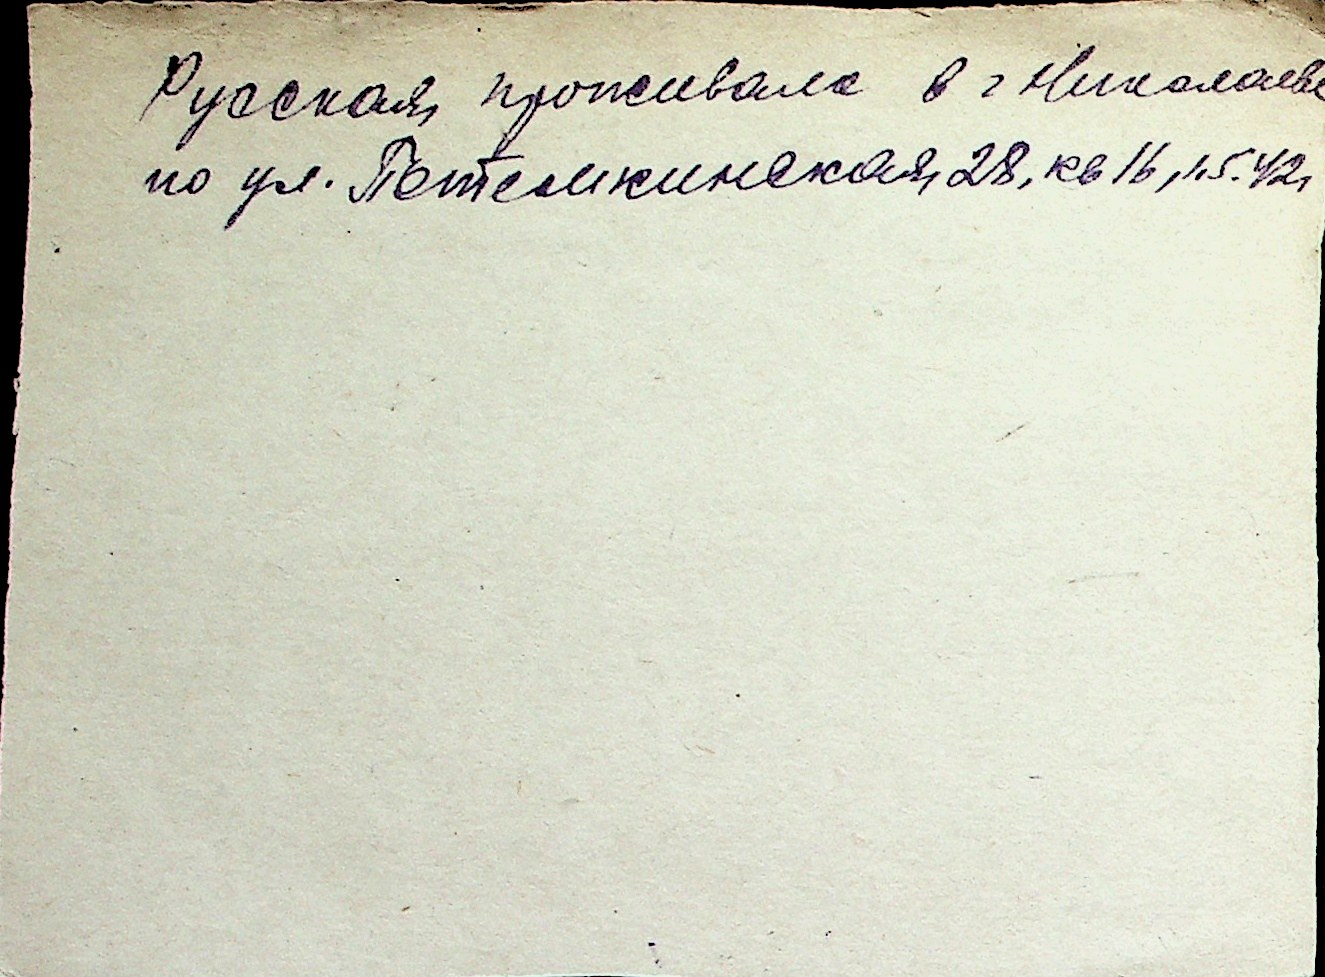 Русская, проживала в г Николаеве
по ул. Потемкинская, 28, кв 16, 1.5.42,